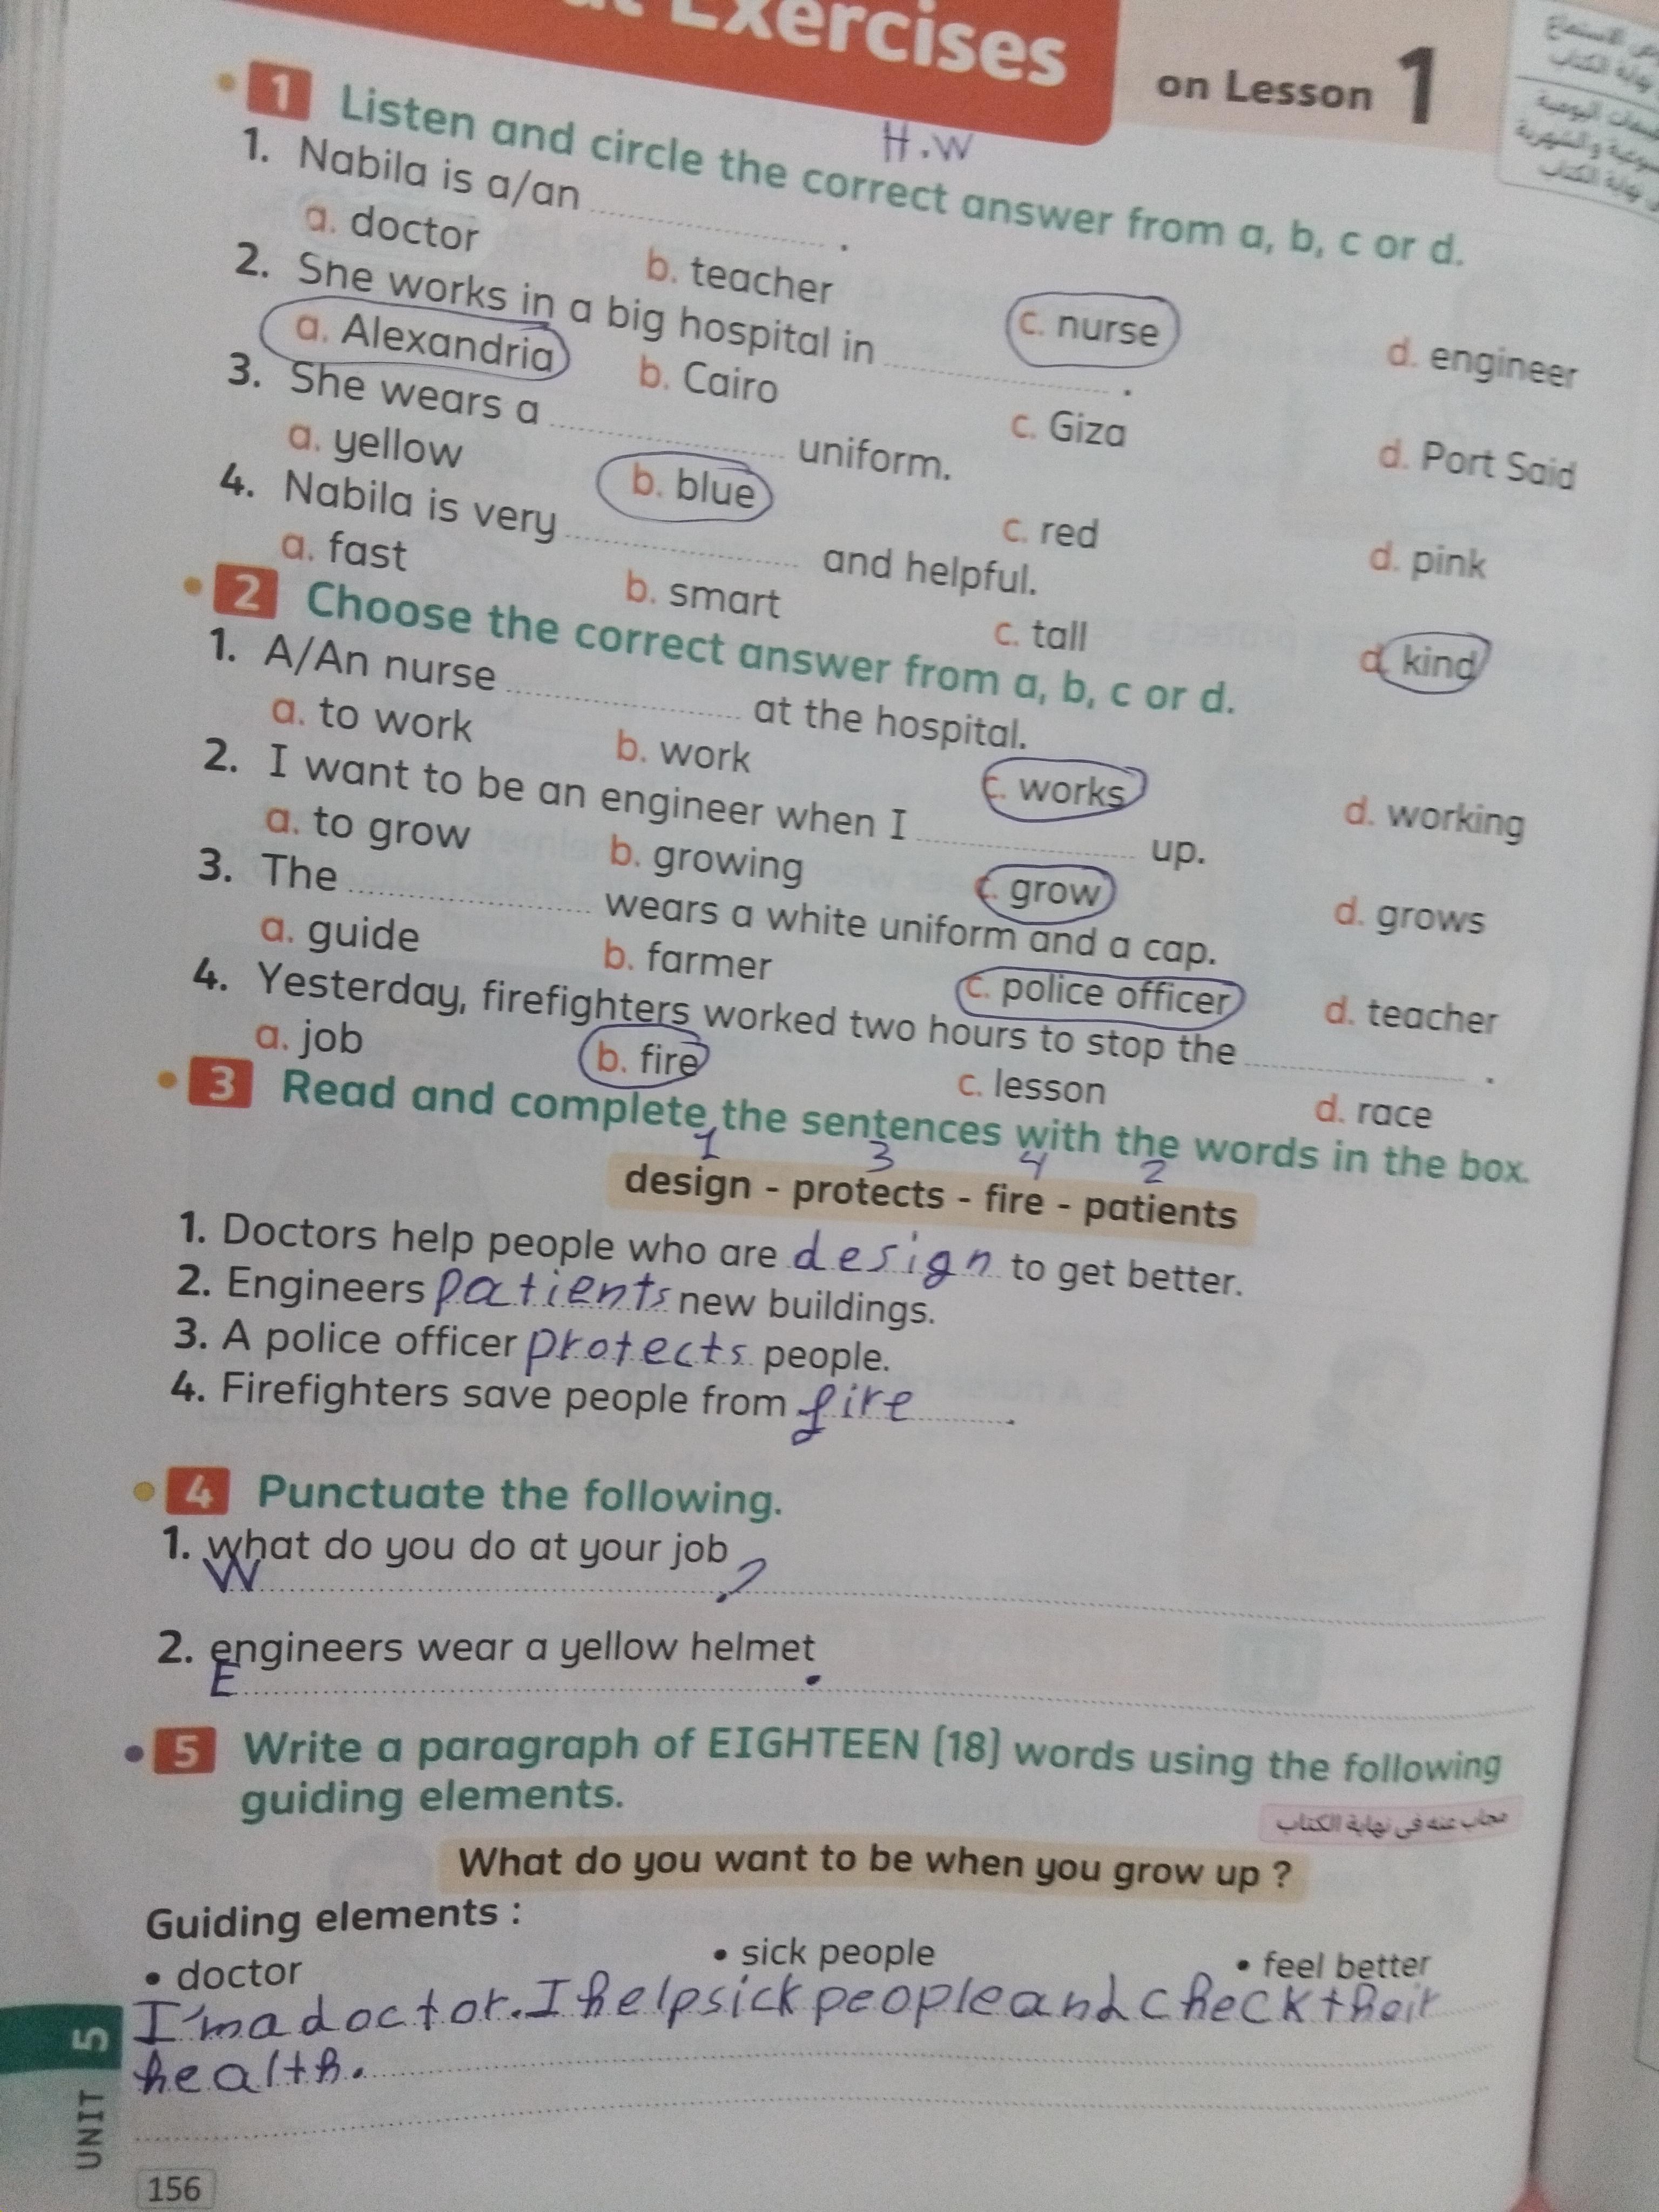 Exercises
on Lesson 1
H.W
1 Listen and circle the correct answer from a, b, c or d.
1. Nabila is a/an .
a. doctor b. teacher c. nurse d. engineer
2. She works in a big hospital in .
a. Alexandria b. Cairo c. Giza d. Port Said
3. She wears a uniform.
a. yellow b. blue c. red d. pink
4. Nabila is very and helpful.
a. fast b. smart c. tall d. kind
2 Choose the correct answer from a, b, c or d.
1. A/An nurse at the hospital.
a. to work b. work c. works d. working
2. I want to be an engineer when I up.
a. to grow b. growing c. grow d. grows
3. The wears a white uniform and a cap.
a. guide b. farmer c. police officer d. teacher
4. Yesterday, firefighters worked two hours to stop the .
a. job b. fire c. lesson d. race
3 Read and complete the sentences with the words in the box.
1 3 4 2
design - protects - fire - patients
1. Doctors help people who are design to get better.
2. Engineers patients new buildings.
3. A police officer protects people.
4. Firefighters save people from fire.
4 Punctuate the following.
1. what do you do at your job
W ?
2. engineers wear a yellow helmet
E .
5 Write a paragraph of EIGHTEEN (18) words using the following
guiding elements.
مجاب عنه فى نهاية الكتاب
What do you want to be when you grow up ?
Guiding elements :
• doctor • sick people • feel better
I'm a doctor. I help sick people and check their
health.
UNIT 5
156